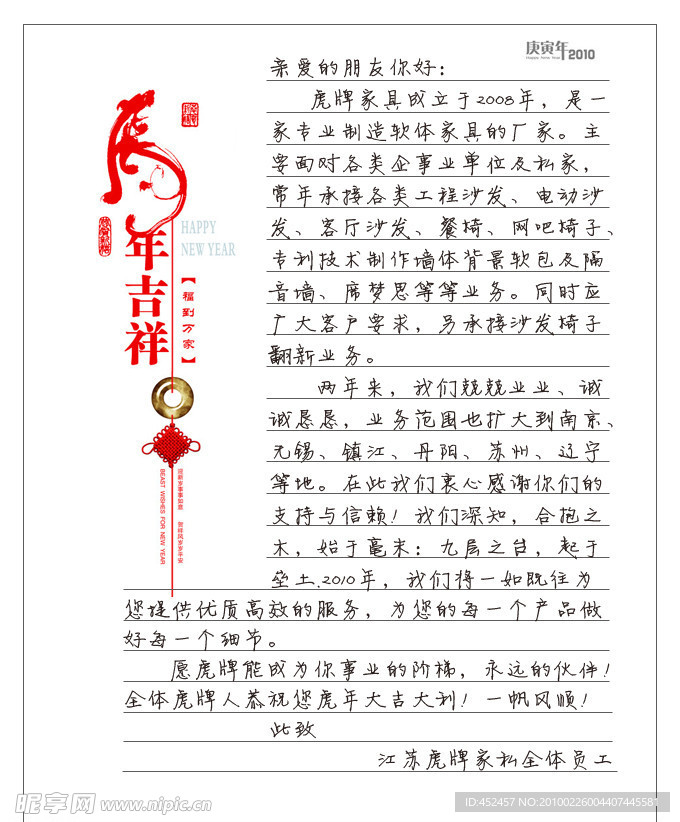 庚寅年2010
Happy New Year
亲爱的朋友你好：
虎牌家具成立于2008年，是一
家专业制造软体家具的厂家。主
要面对各类企事业单位及私家，
常年承接各类工程沙发、电动沙
发、客厅沙发、餐椅、网吧椅子、
专利技术制作墙体背景软包及隔
音墙、席梦思等等业务。同时应
广大客户要求，另承接沙发椅子
翻新业务。
两年来，我们兢兢业业、诚
诚恳恳，业务范围也扩大到南京、
无锡、镇江、丹阳、苏州、辽宁
等地。在此我们衷心感谢你们的
支持与信赖！我们深知，合抱之
木，始于毫末：九层之台，起于
垒土.2010年，我们将一如既往为
您提供优质高效的服务，为您的每一个产品做
好每一个细节。
愿虎牌能成为你事业的阶梯，永远的伙伴！
全体虎牌人恭祝您虎年大吉大利！一帆风顺！
此致
江苏虎牌家私全体员工
虎
年吉祥
HAPPY
NEW YEAR
【福到万家】
迎新岁事事如意
贺祥风岁岁平安
BEAST WISHES FOR NEW YEAR
昵享网 www.nipic.cn
ID:452457 NO:20100226004407445581